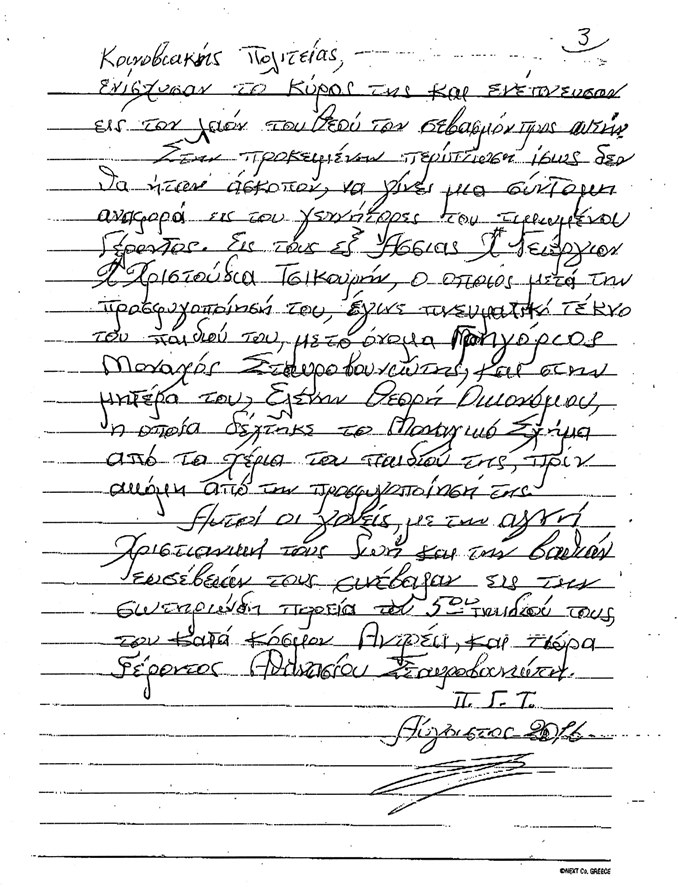 3
Κοινοβιακής Πολιτείας,
ενίσχυσαν το Κύρος της και ενέπνευσαν
εις τον λαόν του Θεού τον σεβασμόν προς αυτήν.
Στην προκειμένην περίπτωση ίσως δεν
θα ήταν άσκοπον, να γίνει μια σύντομη
αναφορά εις του γεννήτορες του τιμωμένου
Γέροντος. Εις τους εξ Άσσιας Χ" Γεώργιον
Χ Χριστούδια Τσικουρήν, ο οποίος μετά την
προσφυγοποίησή του, έγινε πνευματικό τέκνο
του παιδιού του, με το όνομα Γρηγόριος
Μοναχός Σταυροβουνιώτης, και στην
μητέρα του, Ελένην Θεορή Οικονόμου,
η οποία δέχτηκε το Μοναχικό Σχήμα
από τα χέρια του παιδιού της, πριν
ακόμη από την προσφυγοποίησή της.
Αυτοί οι γονείς, με την αγνή
Χριστιανική τους ζωή και την βαθιάν
ευσέβειάν τους συνέβαλαν εις την
σωτηριώδη πορεία του 5ου παιδιού τους,
του κατά κόσμον Αντρέα, και τώρα
Γέροντος Αθανασίου Σταυροβουνιώτη.
Π. Γ. Τ.
Αύγουστος 2016
©NEXT Co. GREECE